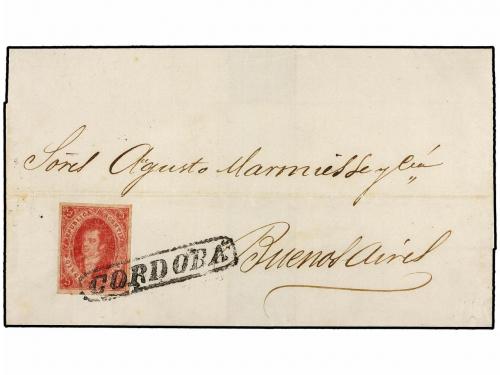 Sōres Agusto Marmiesse y Cia
CORDOBA
Buenos Aires